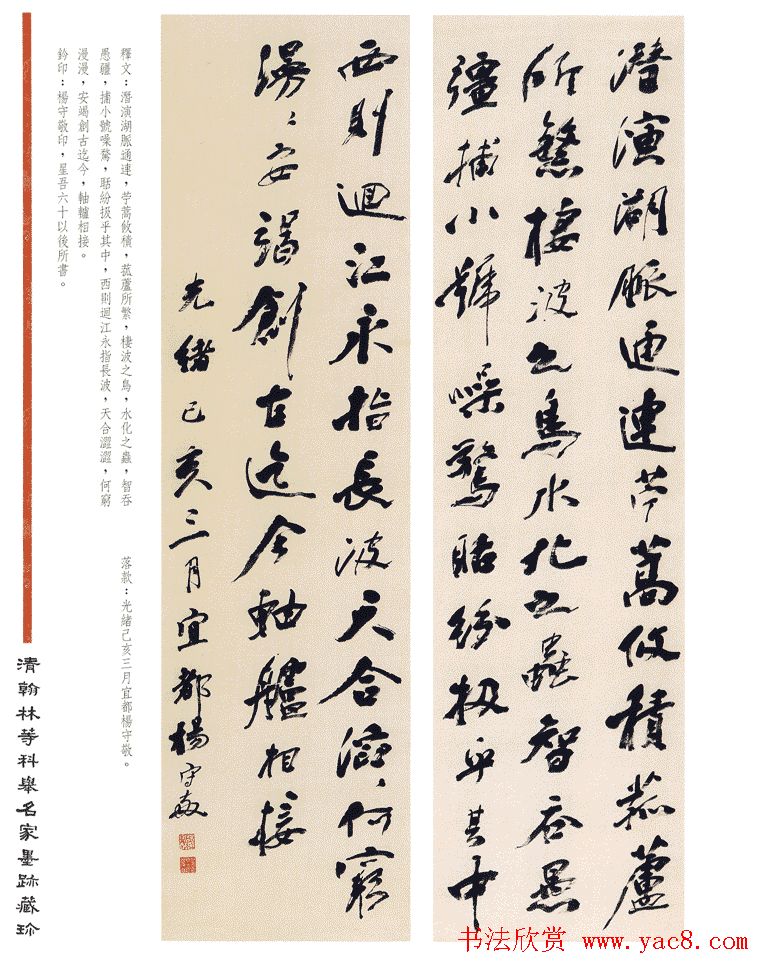 潛演湖脈通連苧蒿攸積菰蘆
所繁棲波之鳥水化之蟲智吞愚
彊捕小號噪驚聒紛扱乎其中
西則迴江永指長波天合澀澀何窮
漫漫安竭創古迄今軸艫相接
光緒己亥三月宜都楊守敬
釋文：潛演湖脈通連，苧蒿攸積，菰蘆所繁，棲波之鳥，水化之蟲，智吞
愚疆，捕小號噪驚，聒紛扱乎其中，西則迴江永指長波，天合澀澀，何窮
漫漫，安竭創古迄今，軸轤相接。
鈐印：楊守敬印，星吾六十以後所書。
落款：光緒己亥三月宜都楊守敬。
清翰林等科舉名家墨跡藏珍
书法欣赏 www.yac8.com